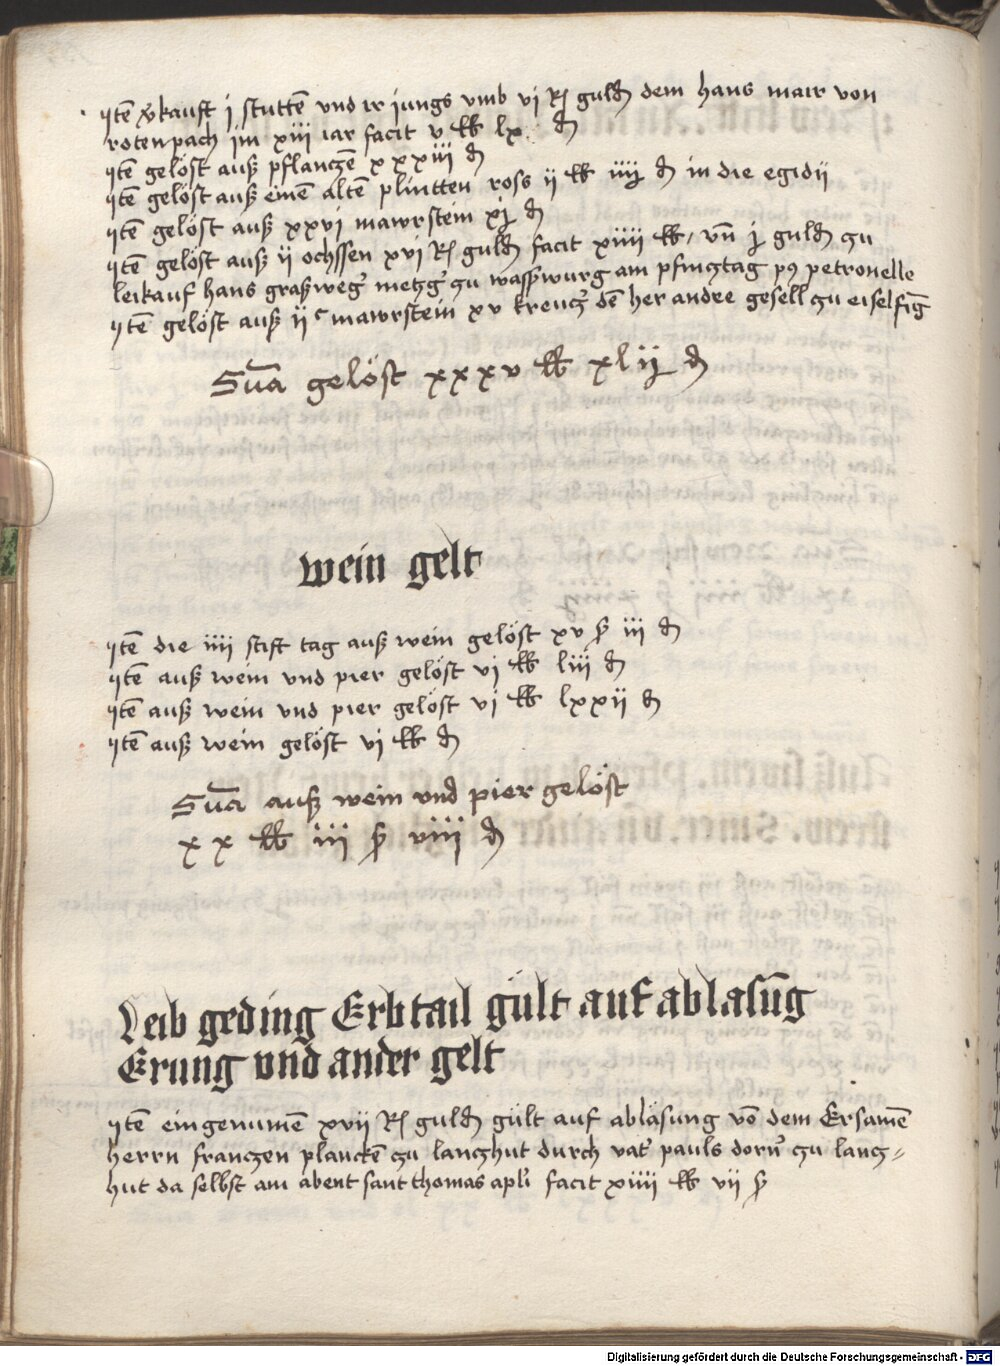 Itē v'kauft j stuttē vnd ir jungs vmb vj R guldn̄ dem hans mair von
rotenpach im xiii iar facit v ℔ lx ₰
Itē gelöst auß pflanczē xxxiii ₰
Itē gelöst auß einē altē plintten ross ij ℔ iiij ₰ in die egidij
Itē gelöst auß xxvi mawrstein xj ₰
Itē gelöst auß ij ochssen xvi R guldn̄ facit xiiii ℔, vn̄ j guldn̄ zu
leikauf hans graßweg' meczg' zu wasserburg am pfincztag p9 petronelle
Itē gelöst auß ij c mawrstein xv kreucz' dē her andre gesell zu eiselfīg
Sūa gelöst xxxv ℔ xlij ₰
wein gelt
Itē die iiij stift tag auß wein gelöst xv ß iii ₰
Itē auß wein vnd pier gelöst vj ℔ liii ₰
Itē auß wein vnd pier gelöst vj ℔ lxxij ₰
Itē auß wein gelöst vj ℔ ₰
Sūa auß wein vnd pier gelöst
xx ℔ iii ß viii ₰
Leib geding Erbtail gült auf ablasūg
Erung vnd ander gelt
Itē eingenumē xvij R guldn̄ gült auf abläsung vō dem Ersamē
herrn franczen planckē zu lanczhut durch vat' pauls dorn' zu lancz=
hut da selbst am abent sant thomas apl'i facit xiiii ℔ vij ß
Digitalisierung gefördert durch die Deutsche Forschungsgemeinschaft - DFG